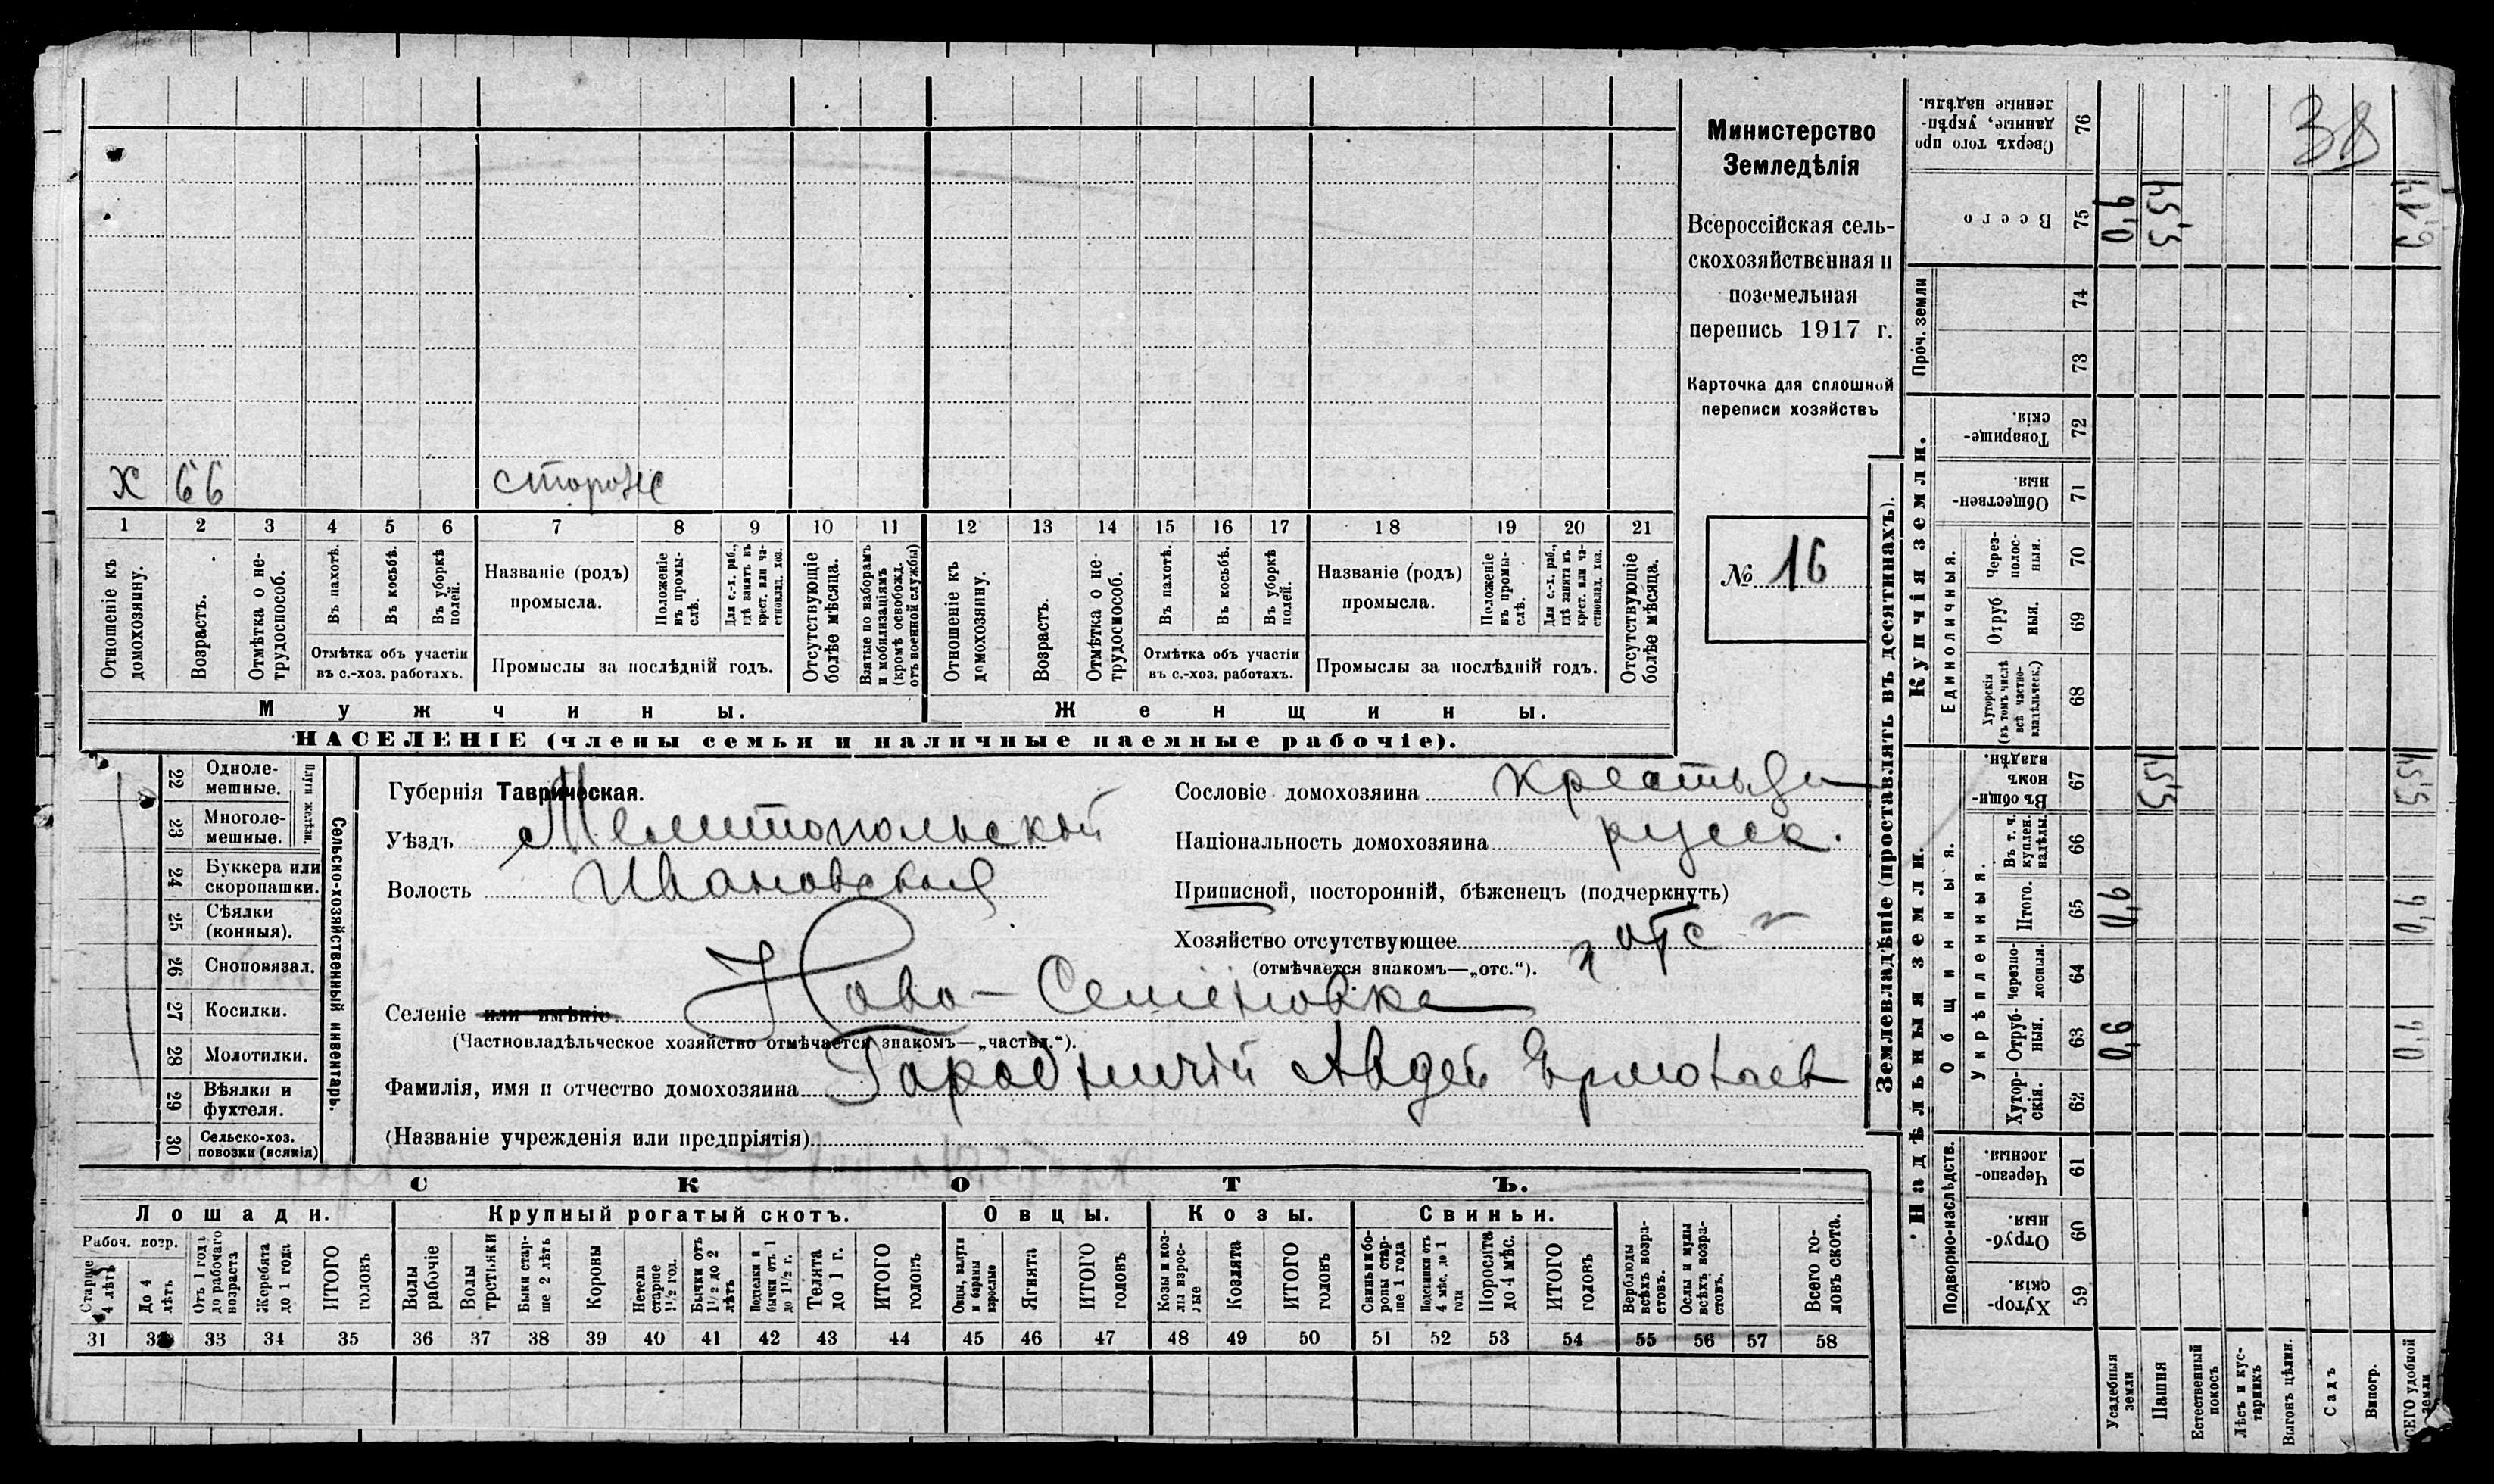 Министерство
Земледѣлія
Всероссійская сель-
скохозяйственная и
поземельная
перепись 1917 г.
Карточка для сплошной
переписи хозяйствъ
№ 16
38
х 66 сторож
1 2 3 4 5 6 7 8 9 10 11 12 13 14 15 16 17 18 19 20 21
Отношеніе къ домохозяину.
Возрастъ.
Отмѣтка о не-трудоспособ.
Въ пахотѣ.
Въ косьбѣ.
Въ уборкѣ полей.
Отмѣтка объ участіи
въ с.-хоз. работахъ.
Названіе (родъ)
промысла.
Положеніе въ промы-слѣ.
Для с.-х. раб., гдѣ занятъ въ крест. или ча-стновлад. хоз.
Промыслы за послѣдній годъ.
Отсутствующіе болѣе мѣсяца.
Взятые по наборамъ и мобилизаціямъ (кромѣ освобожд. отъ военной службы)
Отношеніе къ домохозяину.
Возрастъ.
Отмѣтка о не-трудоспособ.
Въ пахотѣ.
Въ косьбѣ.
Въ уборкѣ полей.
Отмѣтка объ участіи
въ с.-хоз. работахъ.
Названіе (родъ)
промысла.
Положеніе въ промы-слѣ.
Для с.-х. раб., гдѣ занята въ крест. или ча-стновлад. хоз.
Промыслы за послѣдній годъ.
Отсутствующіе болѣе мѣсяца.
Мужчины.
Женщины.
НАСЕЛЕНІЕ (члены семьи и наличные наемные рабочіе).
22 Одноле-мешные.
23 Многоле-мешные.
Плуги желѣзн.
24 Буккера или скоропашки.
25 Сѣялки (конныя).
26 Сноповязал.
27 Косилки.
28 Молотилки.
29 Вѣялки и фухтеля.
30 Сельско-хоз. повозки (всякія)
Сельско-хозяйственный инвентарь.
Губернія Таврическая.
Уѣздъ Мелитопольский
Волость Ивановская
Селеніе или имѣніе Ново-Семеновка
(Частновладѣльческое хозяйство отмѣчается знакомъ—„частвл.“).
Фамилія, имя и отчество домохозяина Городничій Авдей Ермолаев
(Названіе учрежденія или предпріятія)
Сословіе домохозяина крестьян
Національность домохозяина русск.
Приписной, посторонній, бѣженецъ (подчеркнуть)
Хозяйство отсутствующее „отс“
(отмѣчается знакомъ—„отс.“).
СКОТЪ.
Лошади. Крупный рогатый скотъ. Овцы. Козы. Свиньи.
Рабоч. возр.
Старше 4 лѣтъ
До 4 лѣтъ
Отъ 1 года до рабочаго возраста
Жеребята до 1 года
ИТОГО головъ
Волы рабочіе
Волы третьяки
Быки стар-ше 2 лѣтъ
Коровы
Нетели старше 1½ год.
Бычки отъ 1½ до 2 лѣтъ
Воделки и бычки отъ 1 до 1½ г.
Телята до 1 г.
ИТОГО головъ
Овцы, валухи и бараны взрослые
Ягнята
ИТОГО головъ
Козы и коз-лы взрос-лые
Козлята
ИТОГО головъ
Свиньи и бо-ровы стар-ше 1 года
Подсвинки отъ 4 мѣс. до 1 года
Поросята до 4 мѣс.
ИТОГО головъ
Верблюды всѣхъ возра-стовъ.
Ослы и мулы всѣхъ возра-стовъ.
Всего го-ловъ скота.
31 32 33 34 35 36 37 38 39 40 41 42 43 44 45 46 47 48 49 50 51 52 53 54 55 56 57 58
Землевладѣніе (проставлять въ десятинахъ).
Надѣльныя земли.
Купчія земли.
Проч. земли
Подворно-наслѣдств.
Общинныя.
Укрѣпленныя.
Единоличныя.
76 Сверхъ того про данные, укрѣп-ленные надѣлы.
75 Всего 0,6 5,54 6,14
74
73
72 Товарище-скія.
71 Обществен-ныя.
70 Через-полос-ныя.
69 Отруб ныя.
68 Хуторскія (въ томъ числѣ всѣ частно-владѣльческ.)
67 Въ общи-номъ владѣн. 5,54 5,54
66 Въ т. ч. куплен. надѣлы.
65 Итого. 0,6 0,6
64 Черезпо-лосныя.
63 Отруб-ныя. 0,6 0,6
62 Хутор-скія.
61 Черезпо-лосныя.
60 Отруб-ныя.
59 Хутор-скія.
Усадебныя земли
Пашня
Естественный покосъ
Лѣсъ и кус-тарникъ
Выгонъ цѣлин.
Садъ
Виногр.
ВСЕГО удобной земли